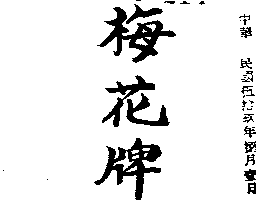 中華 民國伍拾玖年捌月壹日
梅花牌